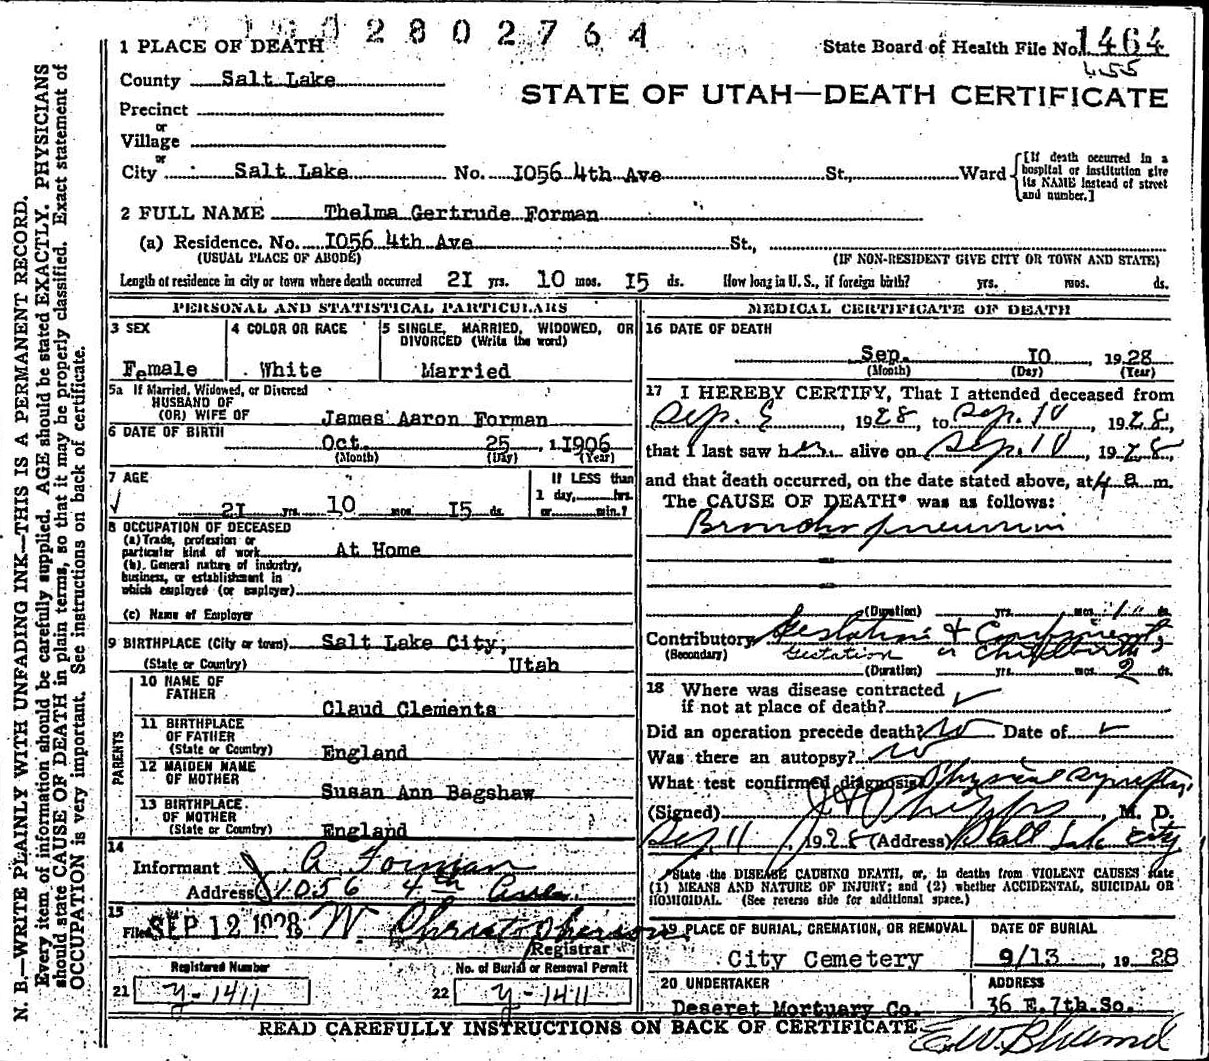 2802764
1 PLACE OF DEATH
State Board of Health File No. 1464
455
County Salt Lake
STATE OF UTAH—DEATH CERTIFICATE
Precinct
or
Village
or
City Salt Lake No. I056 4th Ave St., Ward [If death occurred in a hospital or institution give its NAME instead of street and number.]
2 FULL NAME Thelma Gertrude Forman
(a) Residence. No. I056 4th Ave St.,
(USUAL PLACE OF ABODE) (IF NON-RESIDENT GIVE CITY OR TOWN AND STATE)
Length of residence in city or town where death occurred 2I yrs. 10 mos. I5 ds. How long in U. S., if foreign birth? yrs. mos. ds.
PERSONAL AND STATISTICAL PARTICULARS
3 SEX
Female
4 COLOR OR RACE
White
5 SINGLE, MARRIED, WIDOWED, OR
DIVORCED (Write the word)
Married
5a If Married, Widowed, or Divorced
HUSBAND OF
(OR) WIFE OF James Aaron Forman
6 DATE OF BIRTH
Oct. 25, 1906
(Month) (Day) (Year)
7 AGE
2I yrs. 10 mos. I5 ds.
If LESS than
1 day, hrs.
or min.?
8 OCCUPATION OF DECEASED
(a) Trade, profession or
particular kind of work At Home
(b). General nature of industry,
business, or establishment in
which employed (or employer)
(c) Name of Employer
9 BIRTHPLACE (City or town) Salt Lake City,
(State or Country) Utah
PARENTS
10 NAME OF
FATHER Claud Clements
11 BIRTHPLACE
OF FATHER
(State or Country) England
12 MAIDEN NAME
OF MOTHER Susan Ann Bagshaw
13 BIRTHPLACE
OF MOTHER
(State or Country) England
14
Informant J A Forman
Address 1056 4th Ave
15
Filed SEP 12 1928 W. Christopherson
Registrar
Registered Number
21 y-1411
No. of Burial or Removal Permit
22 y-1411
MEDICAL CERTIFICATE OF DEATH
16 DATE OF DEATH
Sep. IO, 1928
(Month) (Day) (Year)
17 I HEREBY CERTIFY, That I attended deceased from
Sep. 1928, to Sep. 10, 1928,
that I last saw her alive on Sep. 10, 1928,
and that death occurred, on the date stated above, at 4 a m.
The CAUSE OF DEATH* was as follows:
Broncho pneumonia
(Duration) yrs. mos. ds.
Contributory Gestation & Confinement,
(Secondary) Gestation or Childbirth
(Duration) yrs. mos. 2 ds.
18 Where was disease contracted
if not at place of death?
Did an operation precede death? No Date of
Was there an autopsy? No
What test confirmed diagnosis Physical symptoms
(Signed) Phipps, M. D.
Sep 11, 1928 (Address) Salt Lake City
* State the DISEASE CAUSING DEATH, or, in deaths from VIOLENT CAUSES state
(1) MEANS AND NATURE OF INJURY; and (2) whether ACCIDENTAL, SUICIDAL OR
HOMICIDAL. (See reverse side for additional space.)
19 PLACE OF BURIAL, CREMATION, OR REMOVAL
City Cemetery
DATE OF BURIAL
9/13, 1928
20 UNDERTAKER
Deseret Mortuary Co.
ADDRESS
36 E. 7th. So.
READ CAREFULLY INSTRUCTIONS ON BACK OF CERTIFICATE
N. B.—WRITE PLAINLY WITH UNFADING INK—THIS IS A PERMANENT RECORD.
Every item of information should be carefully supplied. AGE should be stated EXACTLY. PHYSICIANS
should state CAUSE OF DEATH in plain terms, so that it may be properly classified. Exact statement of
OCCUPATION is very important. See instructions on back of certificate.